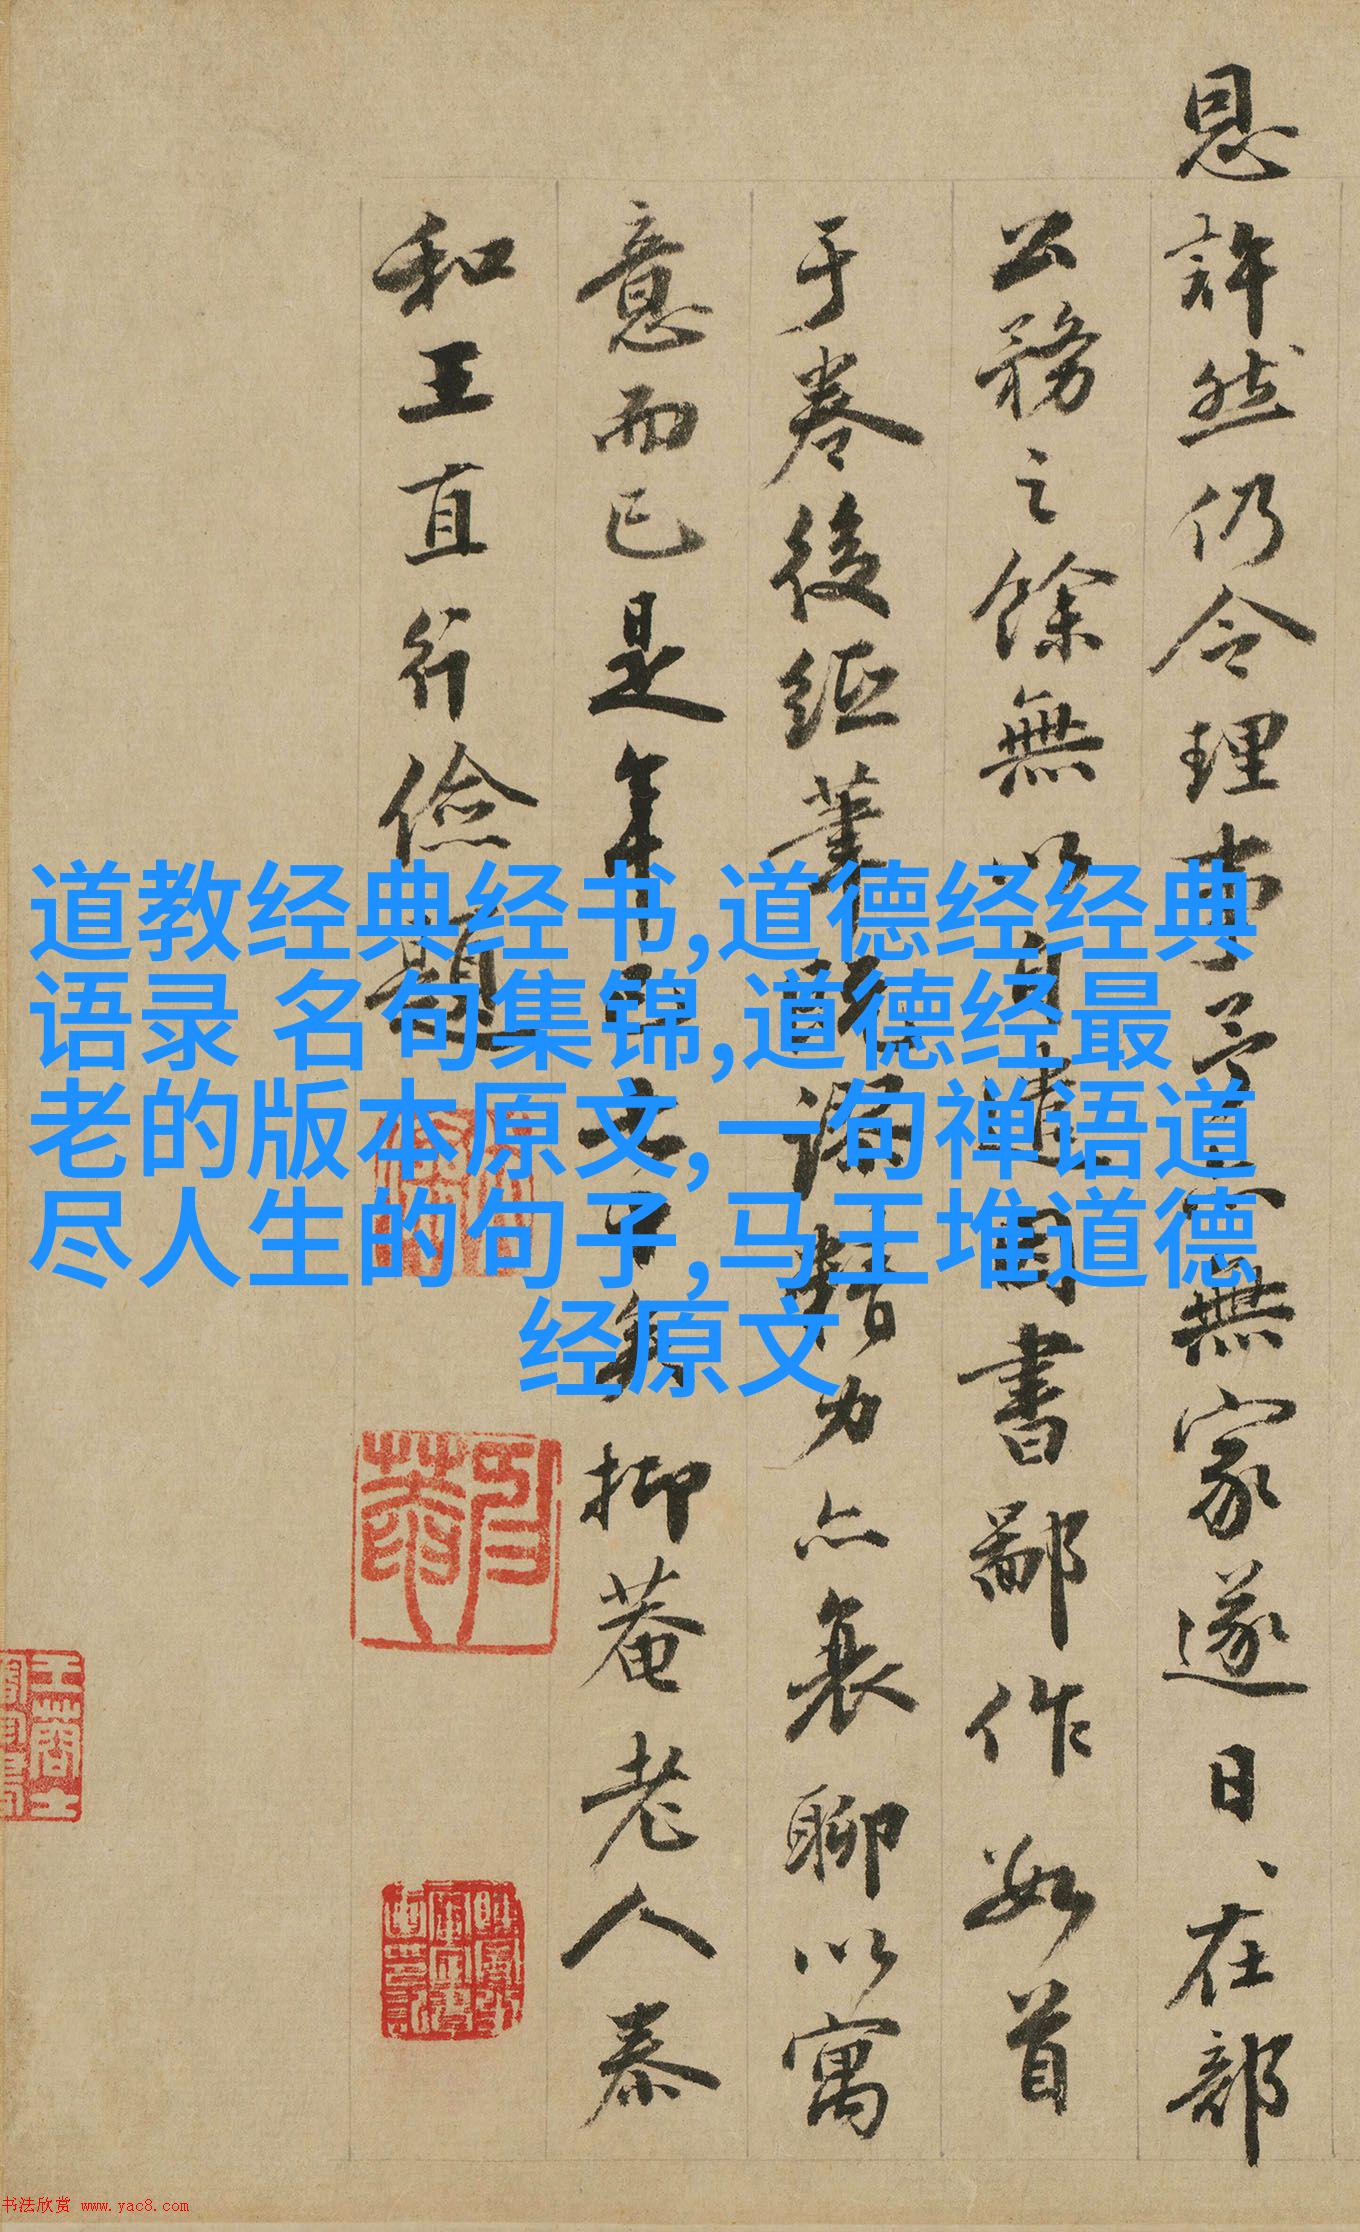 恩許然仍令理事無家遂日、在部
公務之餘無以自遣因書鄙作數首
于卷後紙筆既精力亦衰聊以寓
意而已是年矣抑菴老人泰
和王直行儉題
道教经典经书,道德经经典
语录 名句集锦,道德经最
老的版本原文,一句禅语道
尽人生的句子,马王堆道德
经原文
书法欣赏 www.yac8.com